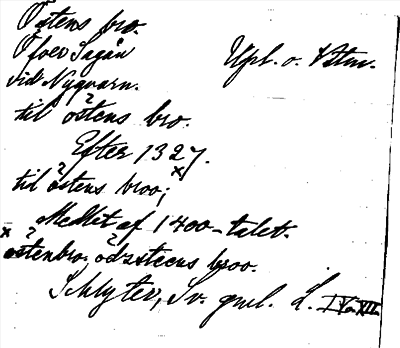 Östens bro.
Öfver Sagån Upl. o. Vstm.
vid Nyqvarn.
til östens bro.
Efter 1327.
til östens broo;
Medlit af 1400-talet.
x östenbro. odzsteens broo.
Schlyter, Sv. gml. L. IV. XII.